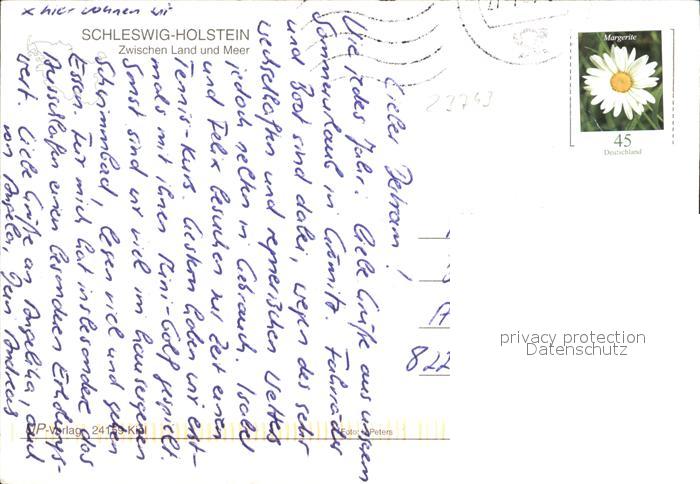 x hier wohnen wir
SCHLESWIG-HOLSTEIN
Zwischen Land und Meer
Margerite
45
Deutschland
22743
Lieber Betram!
Wie jedes Jahr: liebe Grüße aus unserem
Sommerurlaub in Grömitz. Fahrräder
und Boot sind dabei, wegen des sehr
wechselhaften und regnerischen Wetters
jedoch selten in Gebrauch. Isabel
und Felix besuchen zur Zeit einen
Tennis-Kurs. Gestern haben wir erst-
mals mit ihnen Mini-Golf gespielt.
Sonst sind wir viel im hauseigenen
Schwimmbad, lesen viel und gehen
Essen. Für mich hat insbesondere das
Ausschlafen einen besonderen Erholungs-
wert. Liebe Grüße an Angelika, auch
von Angela, Dein Andreas
A
822
privacy protection
Datenschutz
-Verlag 24159 Kiel
Foto: Peters